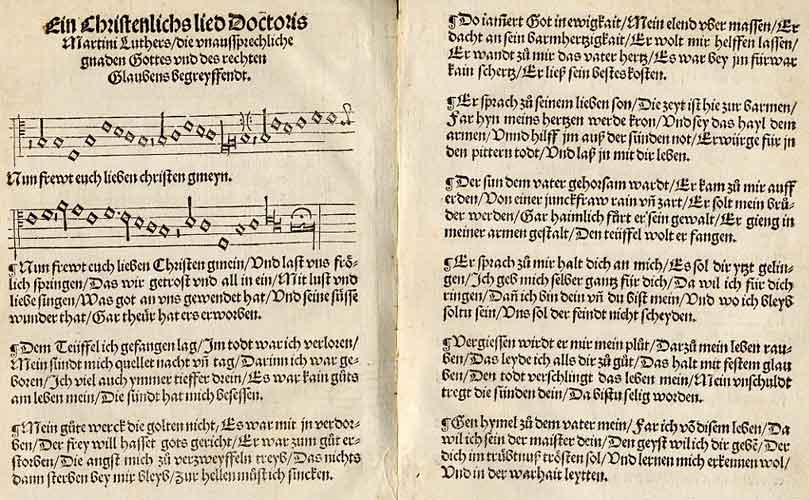 Ein Christenlichs lied Doctoris
Martini Luthers/die vnaussprechliche
gnaden Gottes vnd des rechten
Glaubens begreyffendt.
Nun frewt euch lieben christen gmeyn.
¶Nun frewt euch lieben Christen gmein/Vnd last vns frö-
lich springen/Das wir getrost vnd all in ein/Mit lust vnd
liebe singen/Was got an vns gewendet hat/Vnd seine süsse
wunder that/Gar theür hat ers erworben.
¶Dem Teüffel ich gefangen lag/Im todt war ich verloren/
Mein sündt mich quellet nacht vñ tag/Darinn ich war ge-
boren/Ich viel auch ymmer tieffer drein/Es war kain gůts
am leben mein/Die sündt hat mich besessen.
¶Mein gůte werck die golten nicht/Es war mit jn verdor-
ben/Der frey will hasset gots gericht/Er war zum gůt er-
storben/Die angst mich zů verzweyffeln treyb/Das nichts
dann sterben bey mir bleyb/Zur hellen můst ich sincken.
¶Do iamert Got in ewigkait/Mein elend vber massen/Er
dacht an sein barmhertzigkait/Er wolt mir helffen lassen/
Er wandt zů mir das vater hertz/Es war bey jm fürwar
kain schertz/Er ließ sein bestes kosten.
¶Er sprach zů seinem lieben son/Die zeyt ist hie zur barmen/
Far hyn meins hertzen werde kron/Vnd sey das hayl dem
armen/Vnnd hilff jm auß der sünden not/Erwürge für jn
den pittern todt/Vnd laß jn mit dir leben.
¶Der sun dem vater gehorsam wardt/Er kam zů mir auff
erden/Von einer junckfraw rain vñ zart/Er solt mein brů-
der werden/Gar haimlich fürt er sein gewalt/Er gieng in
meiner armen gestalt/Den teüffel wolt er fangen.
¶Er sprach zů mir halt dich an mich/Es sol dir ytzt gelin-
gen/Ich geb mich selber gantz für dich/Da wil ich für dich
ringen/Dañ ich bin dein vñ du bist mein/Vnd wo ich bleyb
soltu sein/Vns sol der feindt nicht scheyden.
¶Vergiessen wirdt er mir mein plůt/Darzů mein leben rau-
ben/Das leyde ich alls dir zů gůt/Das halt mit festem glau
ben/Den todt verschlingt das leben mein/Mein vnschuldt
tregt die sünden dein/Da bistu selig worden.
¶Gen hymel zů dem vater mein/Far ich võ disem leben/Da
wil ich sein der maister dein/Den geyst wil ich dir gebẽ/Der
dich im trübtnuß trösten sol/Vnd lernen mich erkennen wol/
Vnd in der warhait leytten.